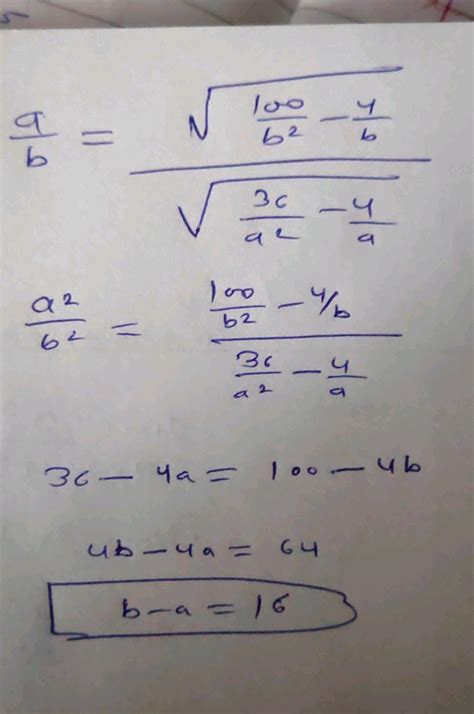 a/b = √(100/b² − 4/b) / √(36/a² − 4/a)
a²/b² = (100/b² − 4/b) / (36/a² − 4/a)
36 − 4a = 100 − 4b
4b − 4a = 64
b − a = 16